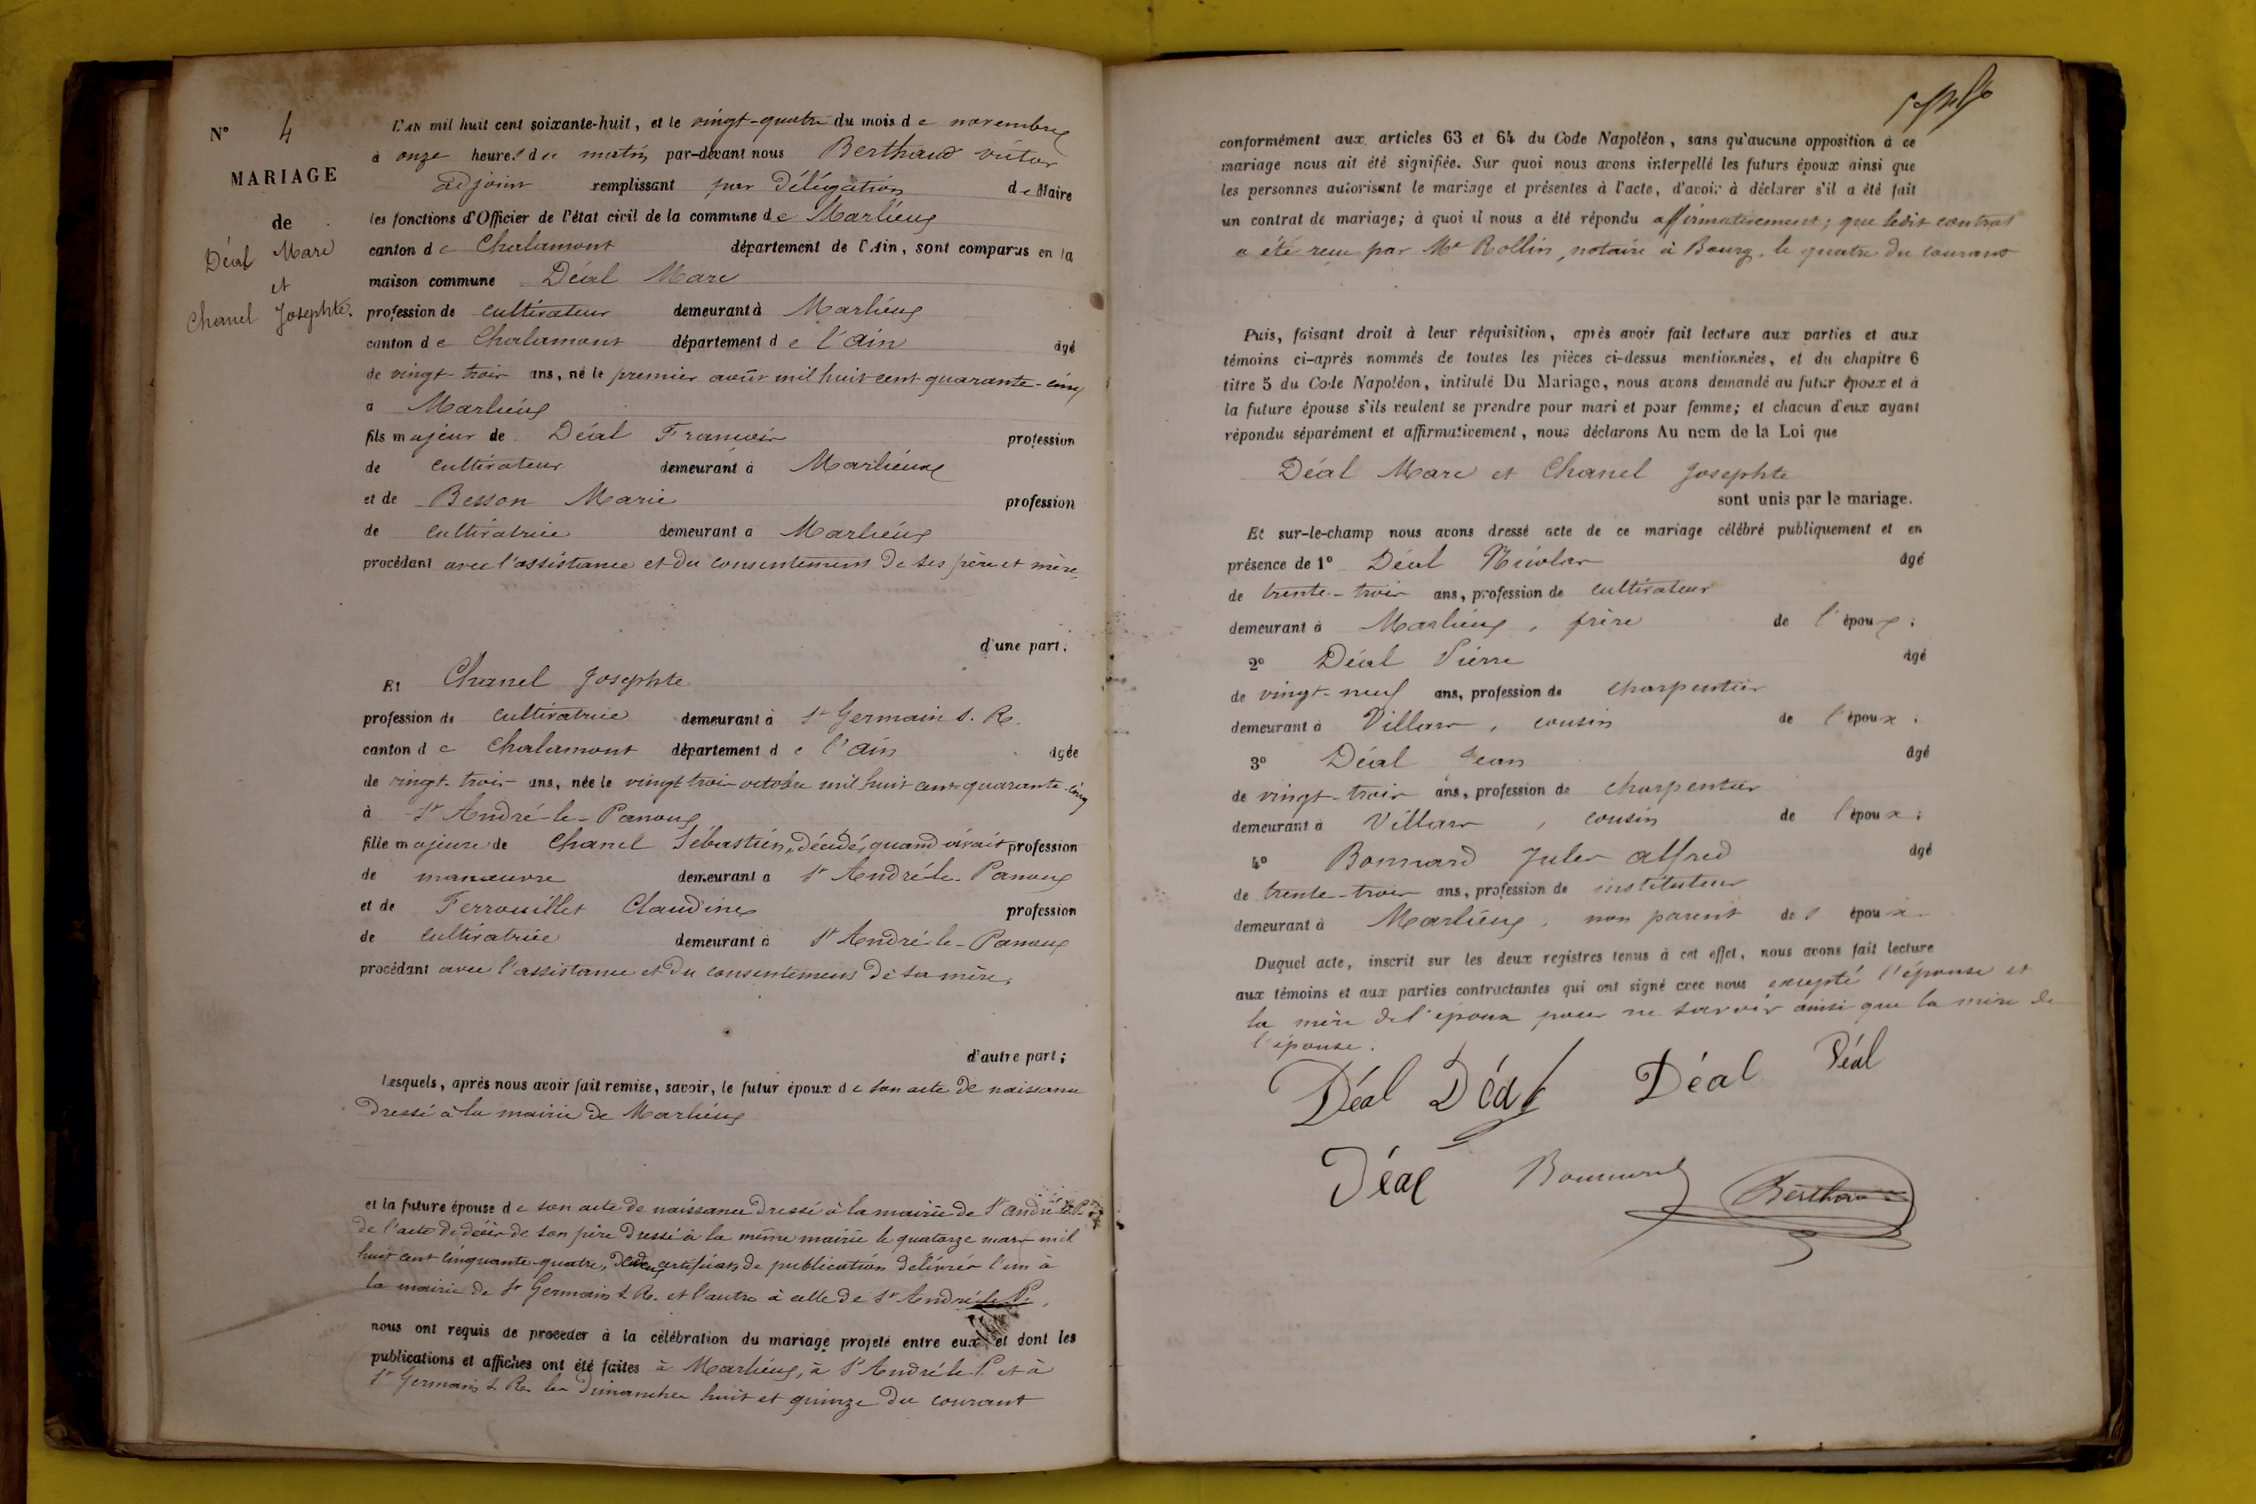 N° 4
MARIAGE
de
Déal Marc
et
Chanel Josephte.
L'AN mil huit cent soixante-huit, et le vingt-quatre du mois de novembre
à onze heures du matin par-devant nous Berthaud victor
adjoint remplissant par délégation de Maire
les fonctions d'Officier de l'état civil de la commune de Marlieux
canton de Chalamont département de l'Ain, sont comparus en la
maison commune Déal Marc
profession de cultivateur demeurant à Marlieux
canton de Chalamont département de l'ain âgé
de vingt-trois ans, né le premier août mil huit cent quarante-cinq
à Marlieux
fils majeur de Déal Francois profession
de cultivateur demeurant à Marlieux
et de Besson Marie profession
de cultivatrice demeurant à Marlieux
procédant avec l'assistance et du consentement de ses père et mère,
d'une part;
Et Chanel Josephte
profession de cultivatrice demeurant à St Germain s. R.
canton de Chalamont département de l'ain âgée
de vingt-trois ans, née le vingt trois octobre mil huit cent quarante-cinq
à St André-le-Panoux
fille majeure de Chanel Sébastien, décédé, quand vivait profession
de manœuvre demeurant à St André-le-Panoux
et de Ferrouillet Claudine profession
de cultivatrice demeurant à St André-le-Panoux
procédant avec l'assistance et du consentement de sa mère,
d'autre part;
Lesquels, après nous avoir fait remise, savoir, le futur époux de son acte de naissance
dressé à la mairie de Marlieux
et la future épouse de son acte de naissance dressé à la mairie de St André le P.
de l'acte de décès de son père dressé à la même mairie le quatorze mars mil
huit cent cinquante-quatre, deux certificats de publication délivrés l'un à
la mairie de St Germain s. R. et l'autre à celle de St André le P.,
nous ont requis de proceder à la célébration du mariage projeté entre eux et dont les
publications et affiches ont été faites à Marlieux, à St André le P. et à
St Germain s. R. les dimanches huit et quinze du courant
conformément aux articles 63 et 64 du Code Napoléon, sans qu'aucune opposition à ce
mariage nous ait été signifiée. Sur quoi nous avons interpellé les futurs époux ainsi que
les personnes autorisant le mariage et présentes à l'acte, d'avoir à déclarer s'il a été fait
un contrat de mariage; à quoi il nous a été répondu affirmativement; que ledit contrat
a été reçu par Me Rollin, notaire à Bourg, le quatre du courant
Puis, faisant droit à leur réquisition, après avoir fait lecture aux parties et aux
témoins ci-après nommés de toutes les pièces ci-dessus mentionnées, et du chapitre 6
titre 5 du Code Napoléon, intitulé Du Mariage, nous avons demandé au futur époux et à
la future épouse s'ils veulent se prendre pour mari et pour femme; et chacun d'eux ayant
répondu séparément et affirmativement, nous déclarons Au nom de la Loi que
Déal Marc et Chanel Josephte
sont unis par le mariage.
Et sur-le-champ nous avons dressé acte de ce mariage célébré publiquement et en
présence de 1° Déal Nicolas âgé
de trente-trois ans, profession de cultivateur
demeurant à Marlieux, frère de l'époux;
2° Déal Pierre âgé
de vingt-neuf ans, profession de charpentier
demeurant à Villars, cousin de l'époux;
3° Déal Jean âgé
de vingt-trois ans, profession de charpentier
demeurant à Villars, cousin de l'époux;
4° Bonnard Jules alfred âgé
de trente-trois ans, profession de instituteur
demeurant à Marlieux, non parent des époux
Duquel acte, inscrit sur les deux registres tenus à cet effet, nous avons fait lecture
aux témoins et aux parties contractantes qui ont signé avec nous excepté l'épouse et
la mère de l'époux pour ne savoir ainsi que la mère de
l'épouse.
Déal Déal Déal Déal
Déal Bonnard Berthaud